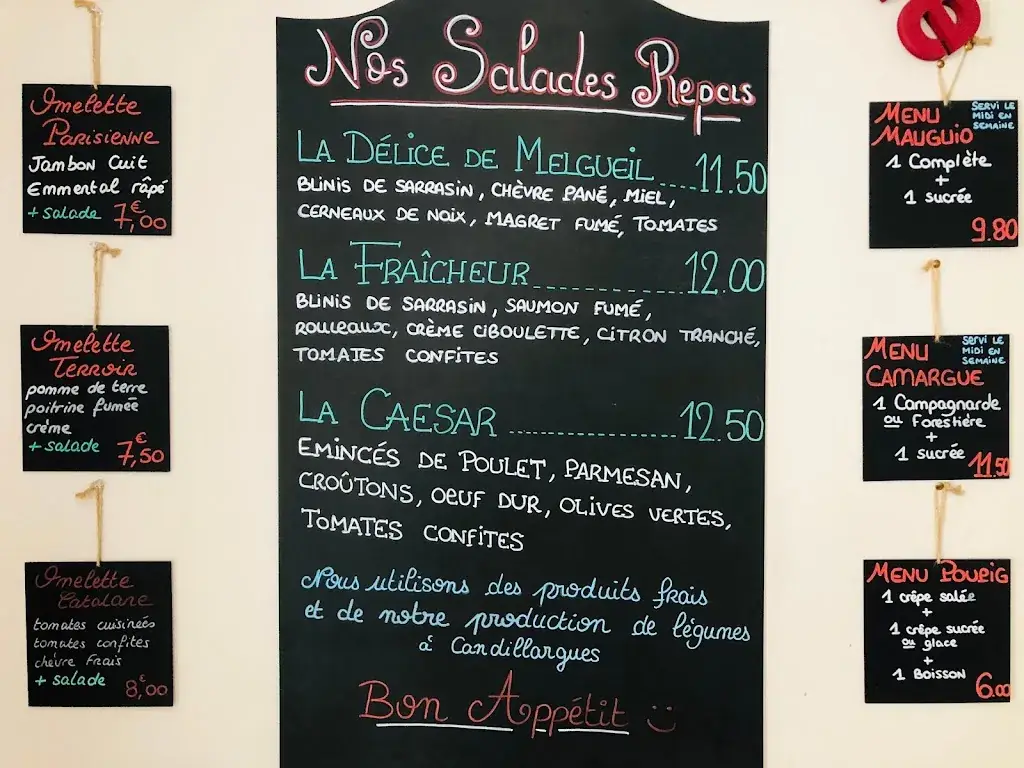 Omelette
Parisienne
Jambon Cuit
Emmental râpé
+ salade 7,00€
Omelette
Terroir
pomme de terre
poitrine fumée
crème
+ salade 7,50€
Omelette
Catalane
tomates cuisinées
tomates confites
chèvre Frais
+ salade 8,00€
Nos Salades Repas
LA DÉLICE DE MELGUEIL....11.50
BLINIS DE SARRASIN, CHÈVRE PANÉ, MIEL,
CERNEAUX DE NOIX, MAGRET FUMÉ, TOMATES
LA FRAÎCHEUR...............12.00
BLINIS DE SARRASIN, SAUMON FUMÉ,
ROULEAUX, CRÈME CIBOULETTE, CITRON TRANCHÉ,
TOMATES CONFITES
LA CAESAR ..................12.50
EMINCÉS DE POULET, PARMESAN,
CROÛTONS, OEUF DUR, OLIVES VERTES,
TOMATES CONFITES
Nous utilisons des produits frais
et de notre production de légumes
à Candillargues
Bon Appétit :)
é
MENU
MAUGUIO
SERVI LE
MIDI EN
SEMAINE
1 Complète
+
1 sucrée
9.80
MENU
CAMARGUE
SERVI LE
MIDI EN
SEMAINE
1 Campagnarde
ou Forestière
+
1 sucrée
11.50
MENU POUPIG
1 crêpe salée
+
1 crêpe sucrée
ou glace
+
1 BOISSON
6.00